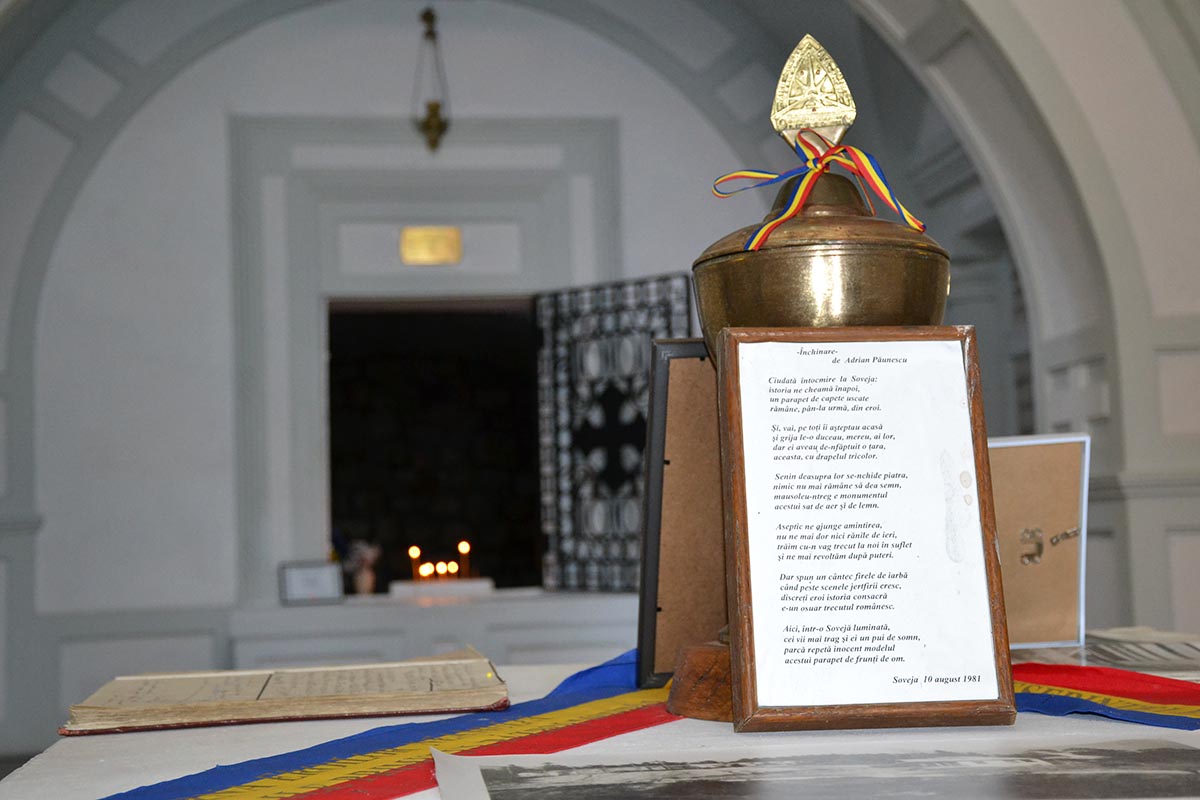 -Închinare-
de Adrian Păunescu
Ciudată întocmire la Soveja:
istoria ne cheamă înapoi,
un parapet de capete uscate
rămâne, pân-la urmă, din eroi.
Și, vai, pe toți îi așteptau acasă
și grija le-o duceau, mereu, ai lor,
dar ei aveau de-nfăptuit o țara,
aceasta, cu drapelul tricolor.
Senin deasupra lor se-nchide piatra,
nimic nu mai rămâne să dea semn,
mausoleu-ntreg e monumentul
acestui sat de aer și de lemn.
Aseptic ne ajunge amintirea,
nu ne mai dor nici rănile de ieri,
trăim cu-n vag trecut la noi în suflet
și ne mai revoltăm după puteri.
Dar spun un cântec firele de iarbă
când peste scenele jertfirii cresc,
discreți eroi istoria consacră
e-un osuar trecutul românesc.
Aici, într-o Sovejă luminată,
cei vii mai trag și ei un pui de somn,
parcă repetă inocent modelul
acestui parapet de frunți de om.
Soveja 10 august 1981